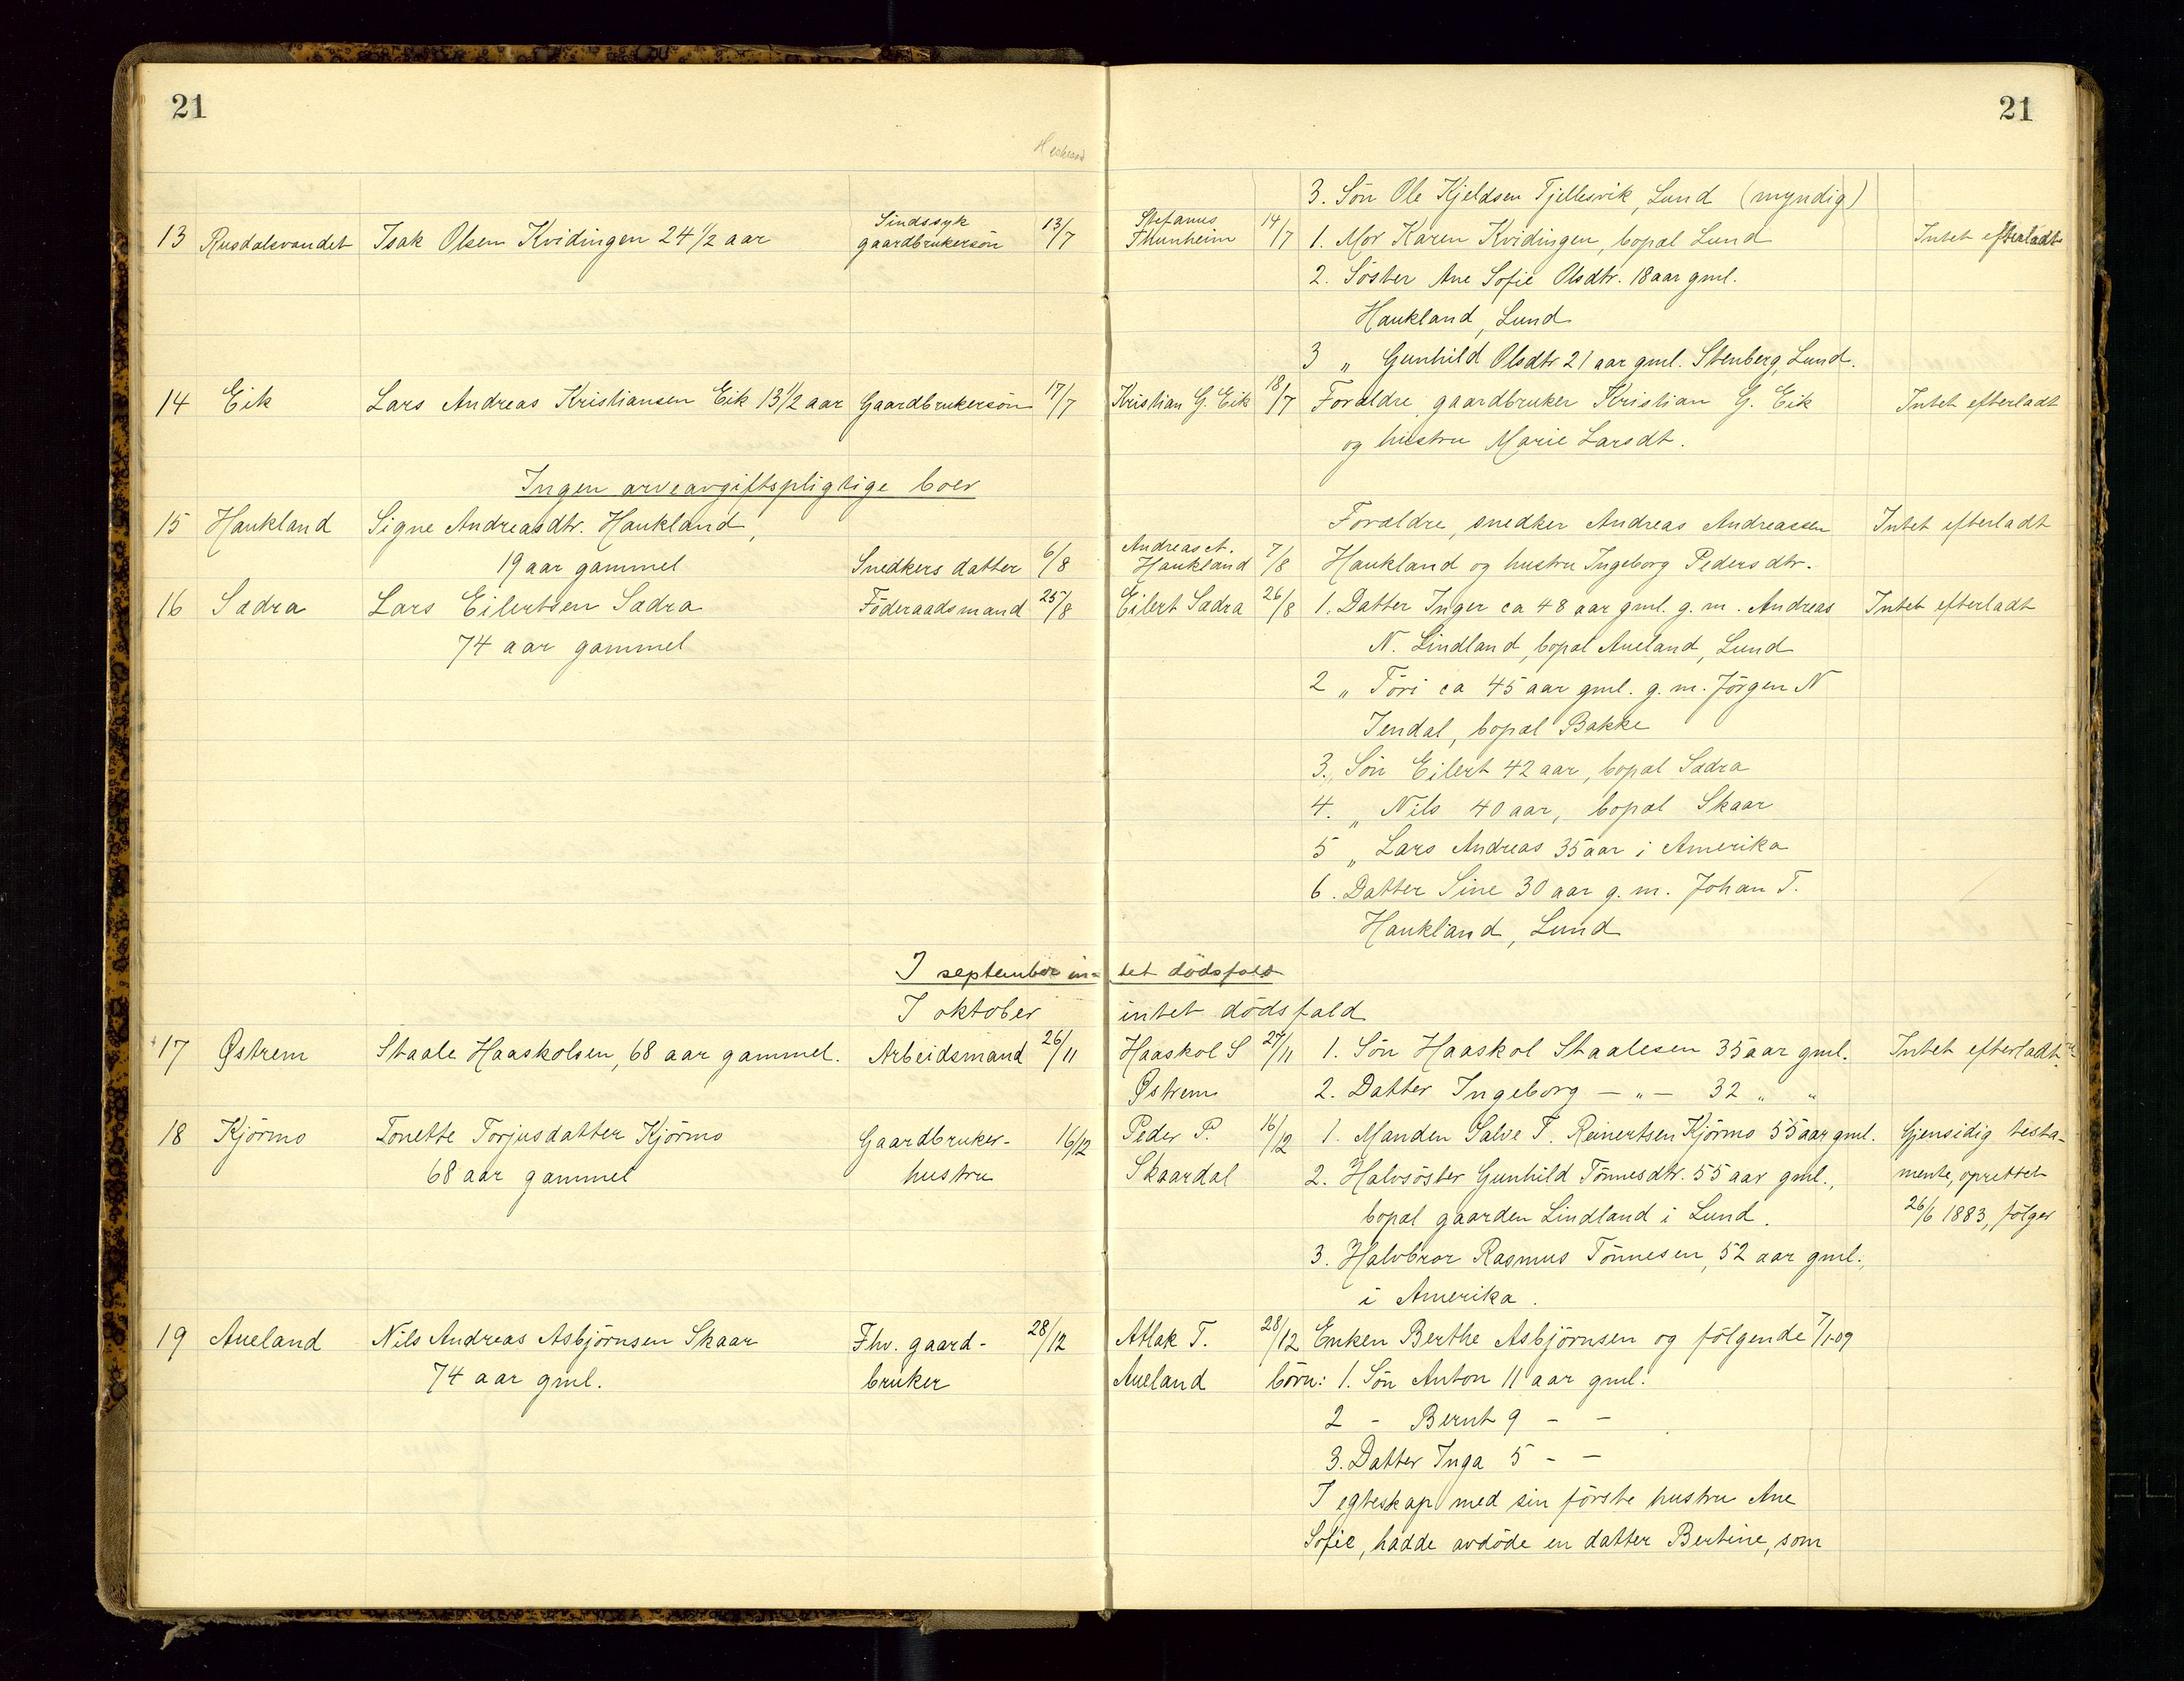 21
21
3. Søn Ole Kjeldsen Tjellesvik, Lund (myndig)
13 Rusdalsvandet Isak Olsen Kvidingen 24 1/2 aar Sindssyk gaardbrukersøn 13/7 Stefanus Thunheim 14/7 1. Mor Karen Kvidingen, bopæl Lund Intet efterladt
2. Søster Ane Sofie Olsdtr. 18 aar gml.
Haukland, Lund
3 „ Gunhild Olsdtr 21 aar gml. Stenberg, Lund.
14 Eik Lars Andreas Kristiansen Eik 13 1/2 aar Gaardbrukersøn 17/7 Kristian G. Eik 18/7 Forældre gaardbruker Kristian G. Eik Intet efterladt
og hustru Marie Larsdt.
Ingen arveavgiftspligtige boer
15 Haukland Signe Andreasdtr. Haukland, Forældre, snedker Andreas Andreassen Intet efterladt
19 aar gammel Snedkers datter 6/8 Andreas A. Haukland 7/8 Haukland og hustru Ingeborg Pedersdtr.
16 Sædra Lars Eilertsen Sædra Føderaadsmand 25/8 Eilert Sædra 26/8 1. Datter Inger ca 48 aar gml. g. m. Andreas Intet efterladt
74 aar gammel N. Lindland, bopæl Aueland, Lund
2 „ Tori ca 45 aar gml. g. m. Jørgen N
Jendal, bopæl Bakke
3. Søn Eilert 42 aar, bopæl Sædra
4. „ Nils 40 aar, bopæl Skaar
5 „ Lars Andreas 35 aar i Amerika
6. Datter Sine 30 aar g. m. Johan T.
Haukland, Lund
I september in- tet dödsfald
I oktober intet dödsfald
17 Østrem Staale Haaskolsen, 68 aar gammel. Arbeidsmand 26/11 Haaskol S 27/11 1. Søn Haaskol Staalesen 35 aar gml. Intet efterladt.
Østrem 2. Datter Ingeborg — „ — 32 „ „
18 Kjörmo Tonette Torjusdatter Kjörmo Gaardbruker- 16/12 Peder P. 16/12 1. Manden Salve T. Reinertsen Kjörmo 55 aar gml. Gjensidig testa-
68 aar gammel hustru Skaardal 2. Halvsöster Gunhild Tönnesdtr. 55 aar gml., mente, oprettet
bopæl gaarden Lindland i Lund. 26/6 1883, følger
3. Halvbror Rasmus Tönnesen, 52 aar gml.,
i Amerika.
19 Aueland Nils Andreas Asbjörnsen Skaar Fhv. gaard- 28/12 Atlak T. 28/12 Enken Berthe Asbjörnsen og fölgende 7/1-09
74 aar gml. bruker Aueland börn: 1. Søn Anton 11 aar gml.
2 - Bernt 9 - -
3. Datter Inga 5 - -
I egteskap med sin förste hustru Ane
Sofie, hadde avdöde en datter Bertine, som